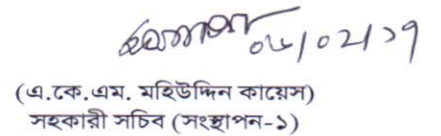 ০৬/০২/১৭
(এ.কে.এম. মহিউদ্দিন কায়েস)
সহকারী সচিব (সংস্থাপন-১)